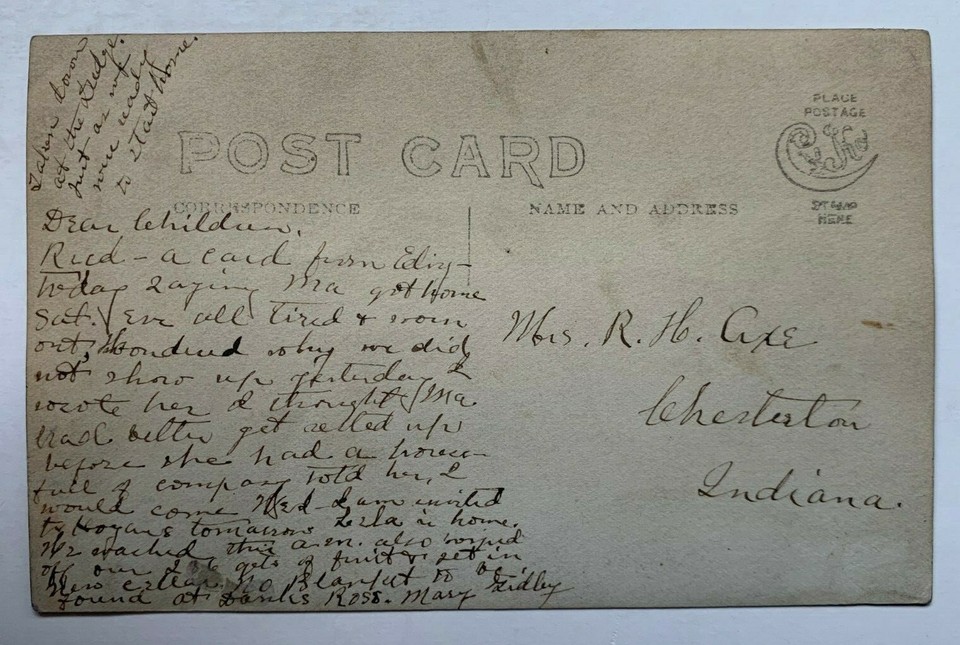 Taken down
at the
just as we
were ready
to start home.
POST CARD
PLACE
POSTAGE
STAMP
HERE
CORRESPONDENCE
NAME AND ADDRESS
Dear Children,
Recd - a card from
today saying Ma got home
Sat. Eve all tired & worn
out, Wondered why we did
not show up yesterday I
wrote her I thought Ma
had better get rested up
before she had a house-
full of company told her, I
would come Wed - I am invited
to tomorrow is home.
We washed this a.m. also wiped
off our 236 qts of fruit & set in
New cellar. No Blanket to be
found at Ross. Mary Gidley
Mrs. R. H. Axe
Chesterton
Indiana.